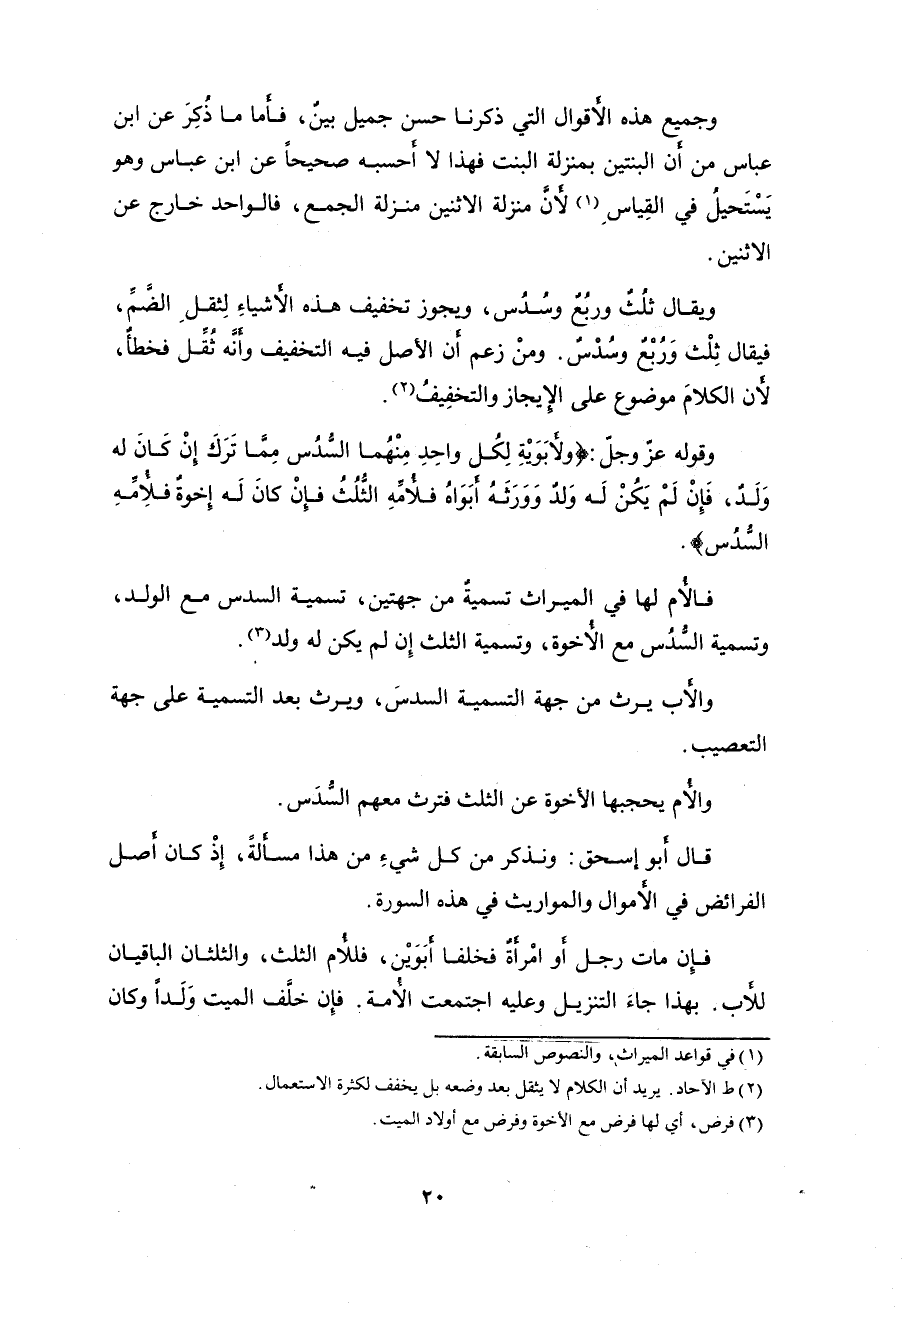 وجميع هذه الأقوال التي ذكرنا حسن جميل بينٌ، فأما ما ذُكِرَ عن ابن
عباس من أن البنتين بمنزلة البنت فهذا لا أحسبه صحيحاً عن ابن عباس وهو
يَسْتَحيلُ في القِياسِ (١) لأَنَّ منزلة الاثنين منزلة الجمع، فالواحد خارج عن
الاثنين.
ويقال ثلُثٌ وربُعٌ وسُدُس، ويجوز تخفيف هذه الأشياءِ لِثقلِ الضَّمِّ،
فيقال ثِلْث وَرُبْعٌ وسُدْسٌ. ومنْ زعم أن الأصل فيه التخفيف وأنَّه ثُقِّل فخطأٌ،
لأن الكلامَ موضوع على الإيجاز والتخفِيفُ(٢).
وقوله عزّ وجلّ: ﴿ولأبَوَيْةِ لِكُل واحِدِ مِنْهُما السُّدُس مِمَّا تَرَكَ إنْ كَانَ له
وَلَدٌ، فَإنْ لَمْ يَكُنْ لَه وَلدٌ وَوَرَثَهُ أبَوَاهُ فلأمِّهِ الثُّلُثُ فإنْ كانَ لَه إخوةٌ فلأمِّهِ
السُّدُس﴾.
فالأم لها في الميراث تسميةٌ من جهتين، تسمية السدس مع الولد،
وتسمية السُّدُس مع الأخوة، وتسمية الثلث إن لم يكن له ولد(٣).
والأب يرث من جهة التسمية السدسَ، ويرث بعد التسمية على جهة
التعصيب.
والأم يحجبها الأخوة عن الثلث فترث معهم السُّدَس.
قال أبو إسحق: ونذكر من كل شيءِ من هذا مسألةً، إذْ كان أصل
الفرائض في الأموال والمواريث في هذه السورة.
فإن مات رجل أو امْرأةٌ فخلفا أبَوَيْن، فللأم الثلث، والثلثان الباقيان
للأب. بهذا جاءَ التنزيل وعليه اجتمعت الأمة. فإن خلَّف الميت وَلَداً وكان
(١) في قواعد الميراث، والنصوص السابقة.
(٢) ط الآحاد. يريد أن الكلام لا يثقل بعد وضعه بل يخفف لكثرة الاستعمال.
(٣) فرض، أي لها فرض مع الأخوة وفرض مع أولاد الميت.
٢٠